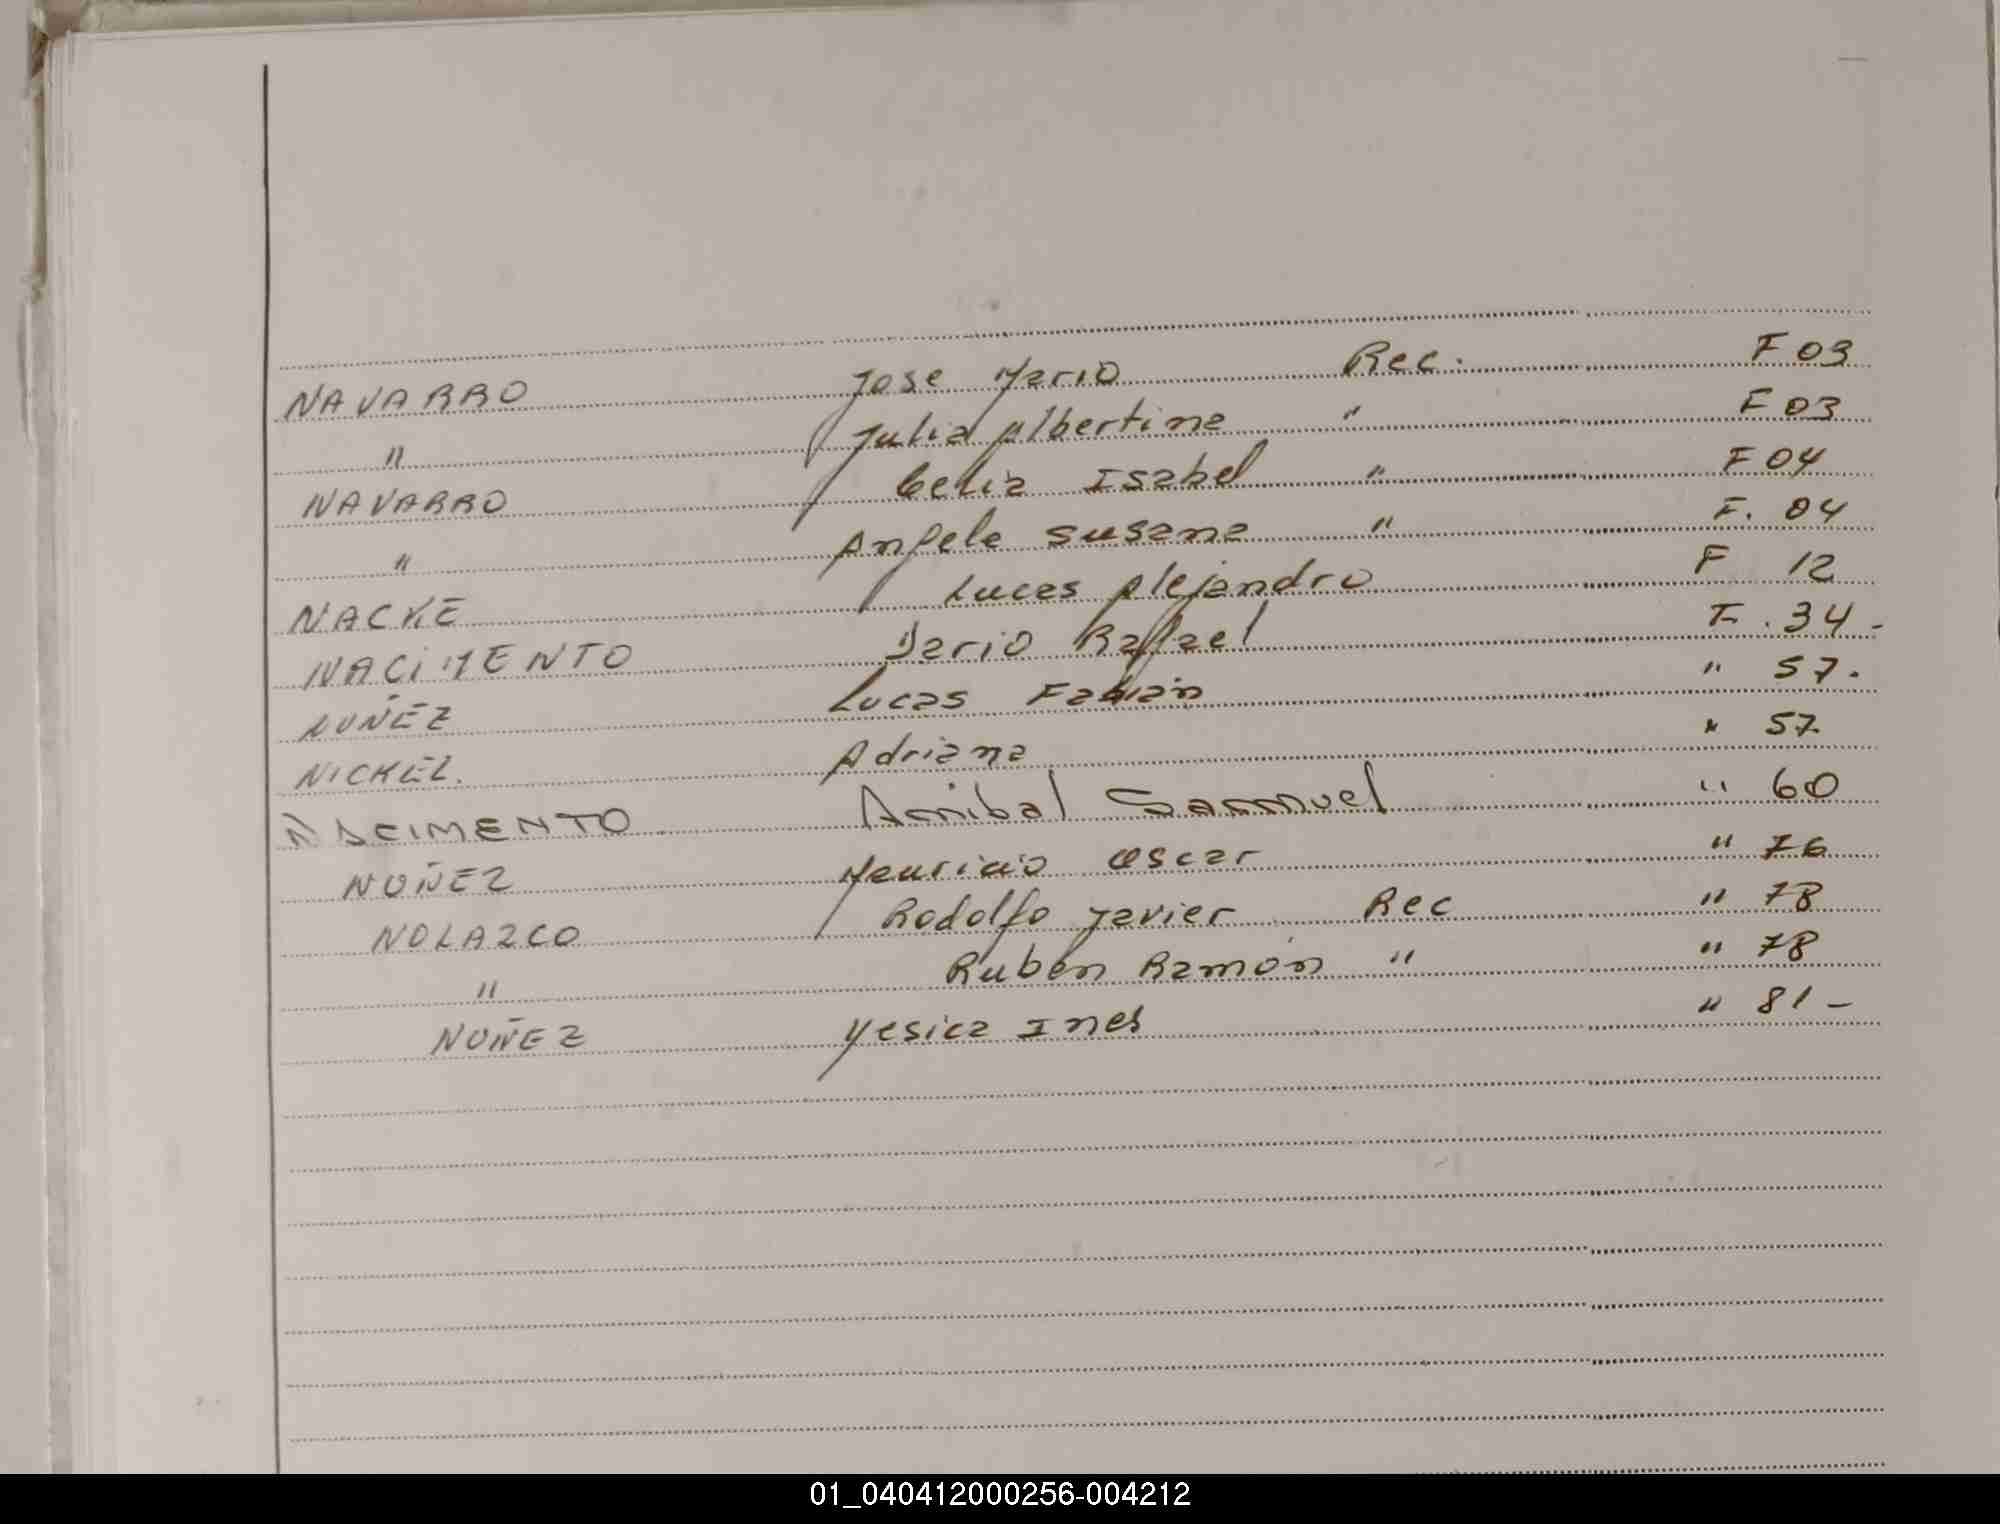 NAVARRO Jose Mario Rec. F 03
" Julia Albertina " F 03
NAVARRO Celia Isabel " F 04
" Angela Susana " F. 04
NACKE Lucas Alejandro F 12
NACIMENTO Dario Rafael F. 34-
NUÑEZ Lucas Fabián " 57.
NICKEL. Adriana " 57.
NACIMENTO Annibal Sammuel " 60
NUÑEZ Mauricio Oscar " 76
NOLAZCO Rodolfo Javier Rec " 78
" Ruben Ramón " " 78
NUÑEZ Yesica Ines " 81-
01_040412000256-004212